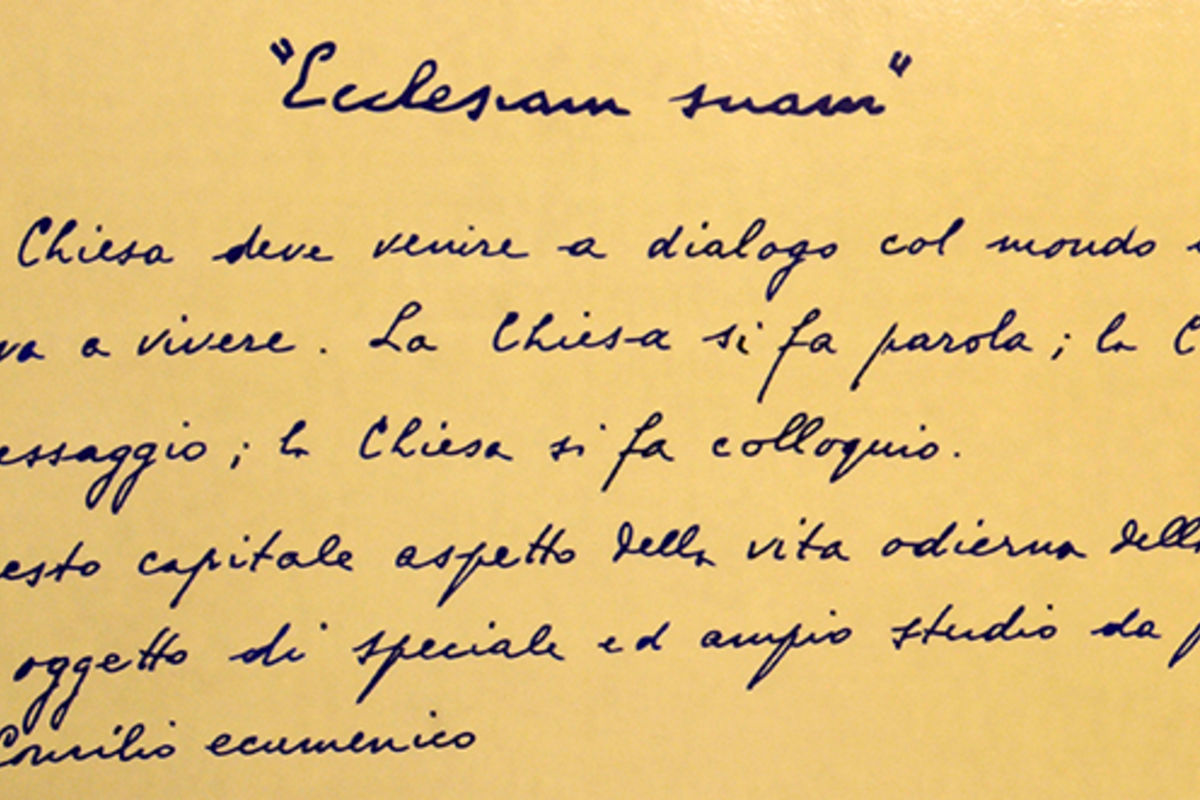 "Ecclesiam suam"
Chiesa deve venire a dialogo col mondo
va a vivere. La Chiesa si fa parola; la C
essaggio; la Chiesa si fa colloquio.
esto capitale aspetto della vita odierna dell
oggetto di speciale ed ampio studio da p
Consilio ecumenico